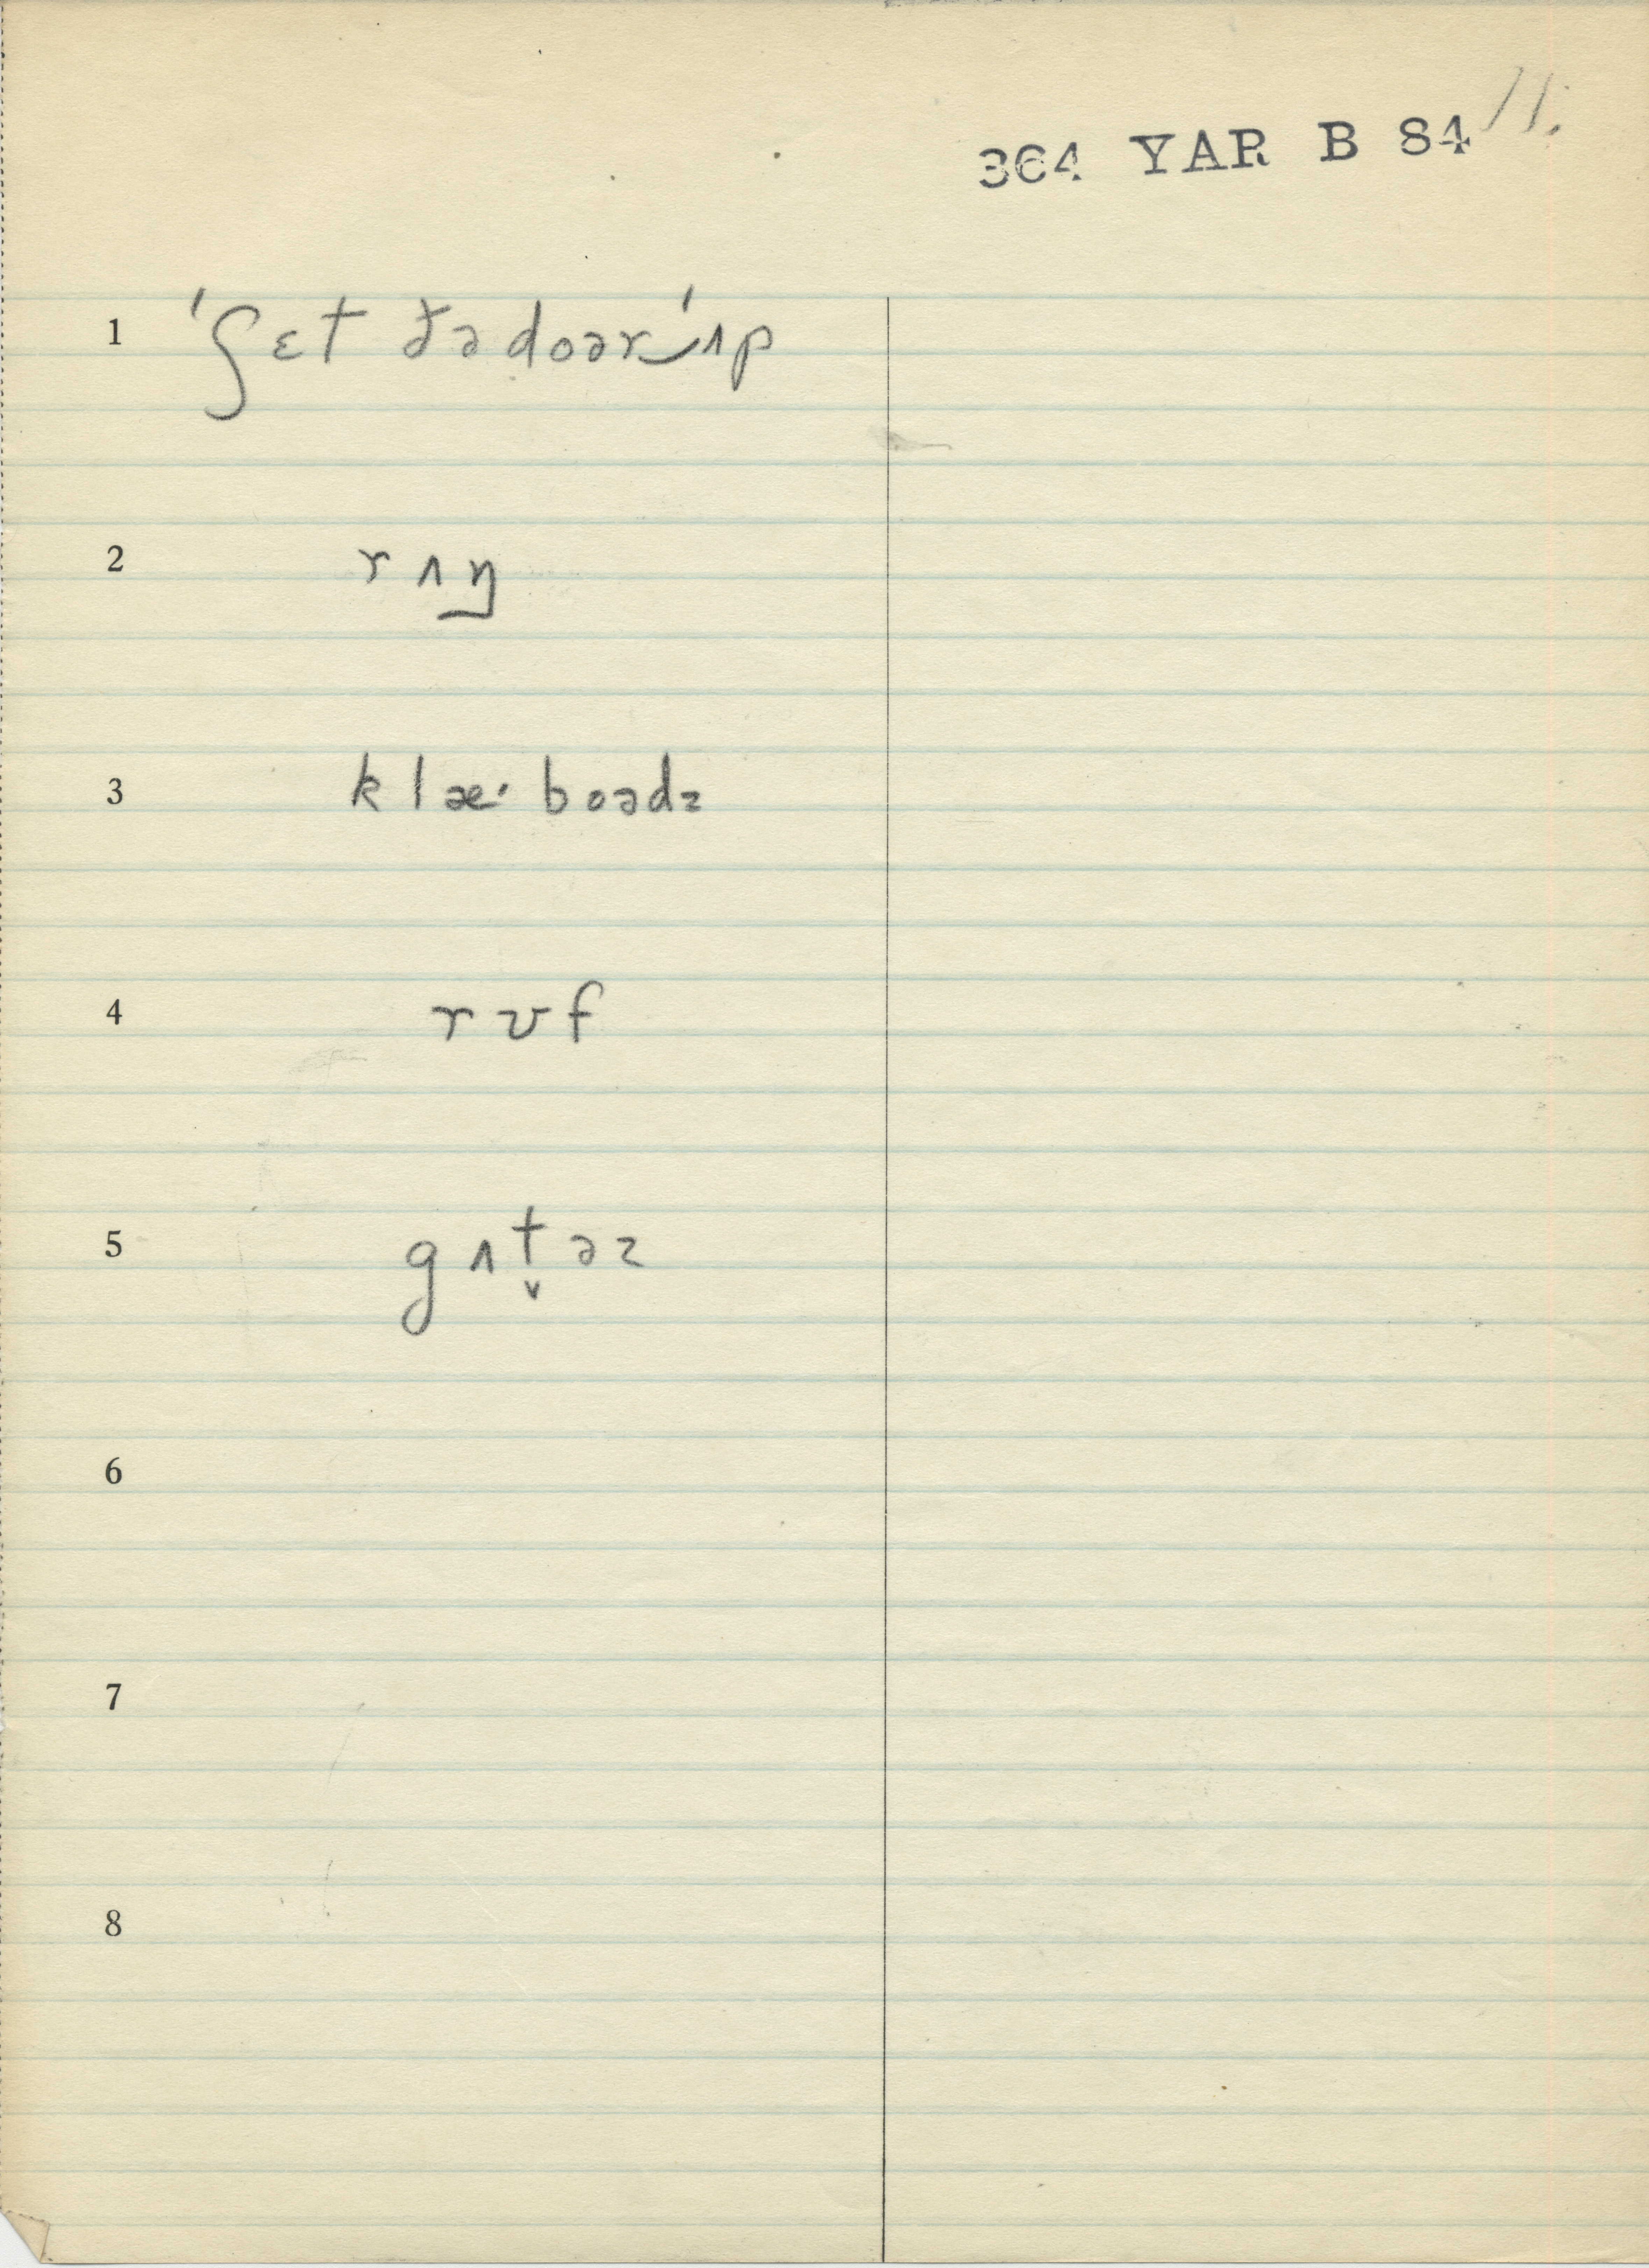 11.
364 YAR B 84
1 ˈʃɛt ðədoər‿ˈʌp
2 rʌŋ
3 klæˑboədz
4 rʊf
5 gʌt̬əz
6
7
8